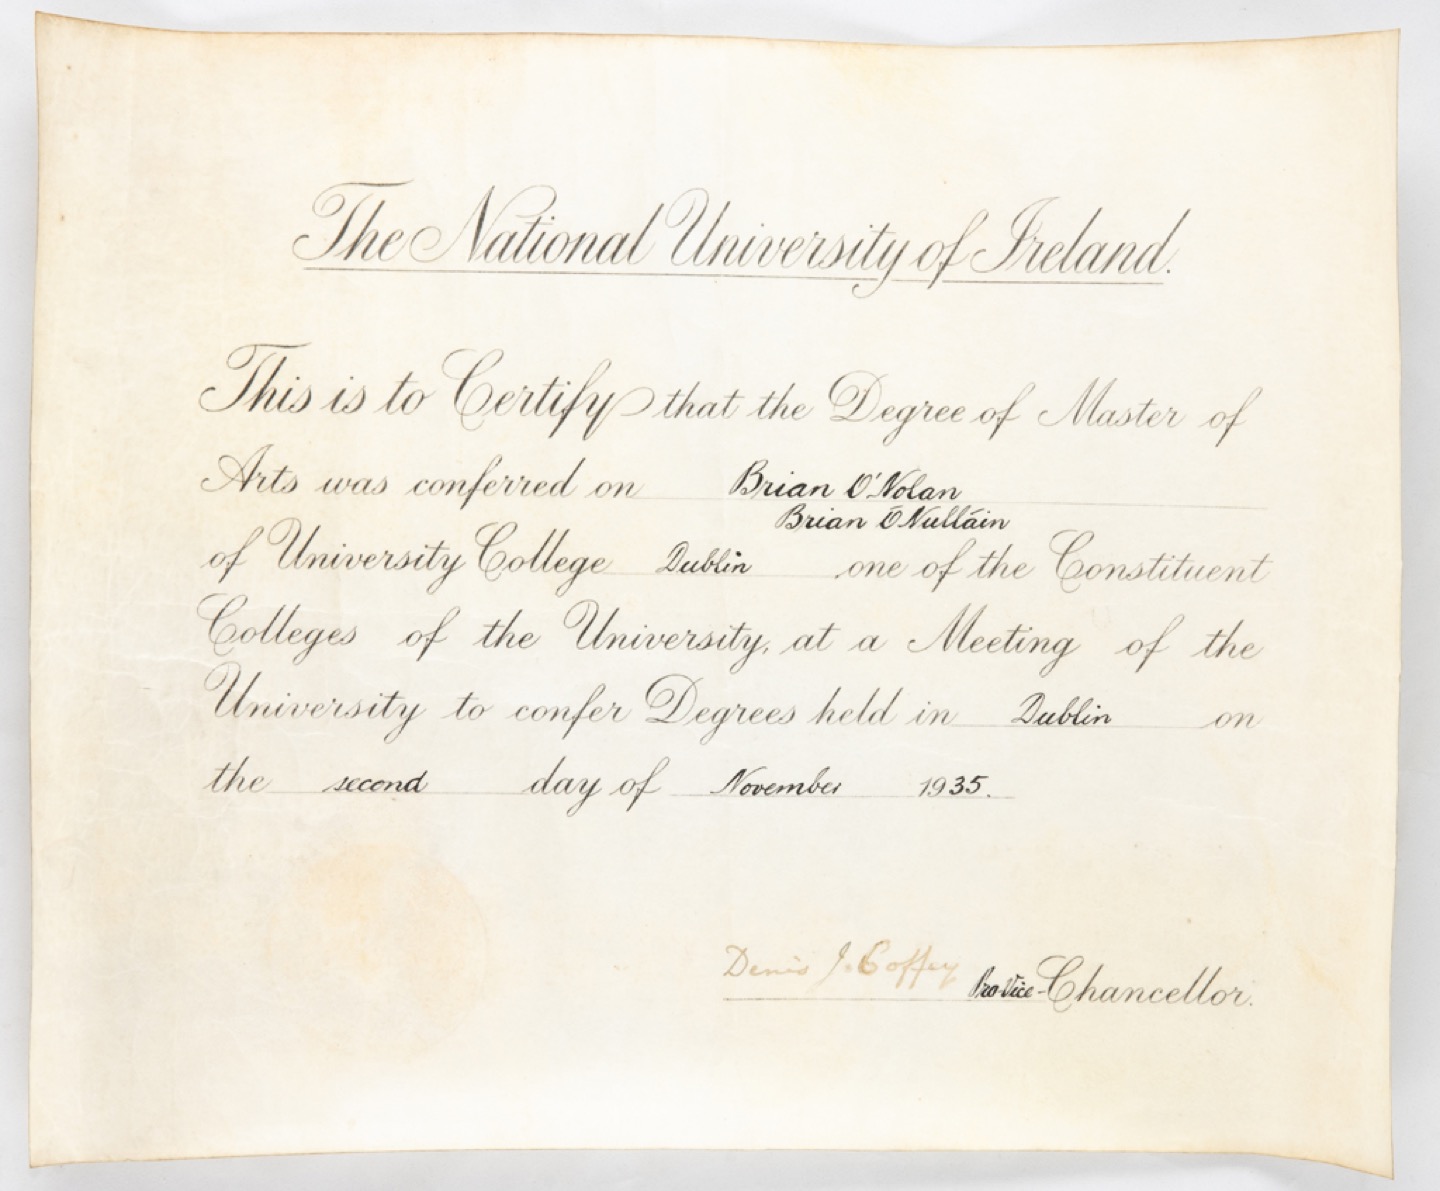 The National University of Ireland.
This is to Certify that the Degree of Master of
Arts was conferred on Brian O'Nolan
Brian Ó Nulláin
of University College Dublin one of the Constituent
Colleges of the University, at a Meeting of the
University to confer Degrees held in Dublin on
the second day of November 1935.
Denis J. Coffey Pro-Vice-Chancellor.